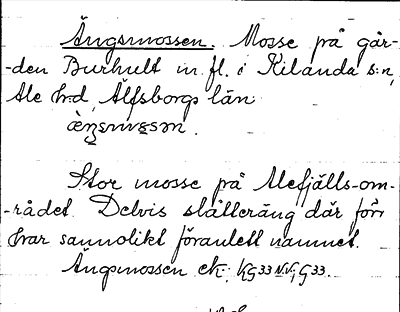 Ängsmossen. Mosse på går-
-den Burhult m.fl. i Kilanda s:n,
Ale h:d, Älfsborgs län
Stor mosse på Alefjälls-om-
-rådet. Delvis slåtteräng där förr
har sannolikt föranlett namnet.
Ängsmossen ek. KG 33 NV, G 33.